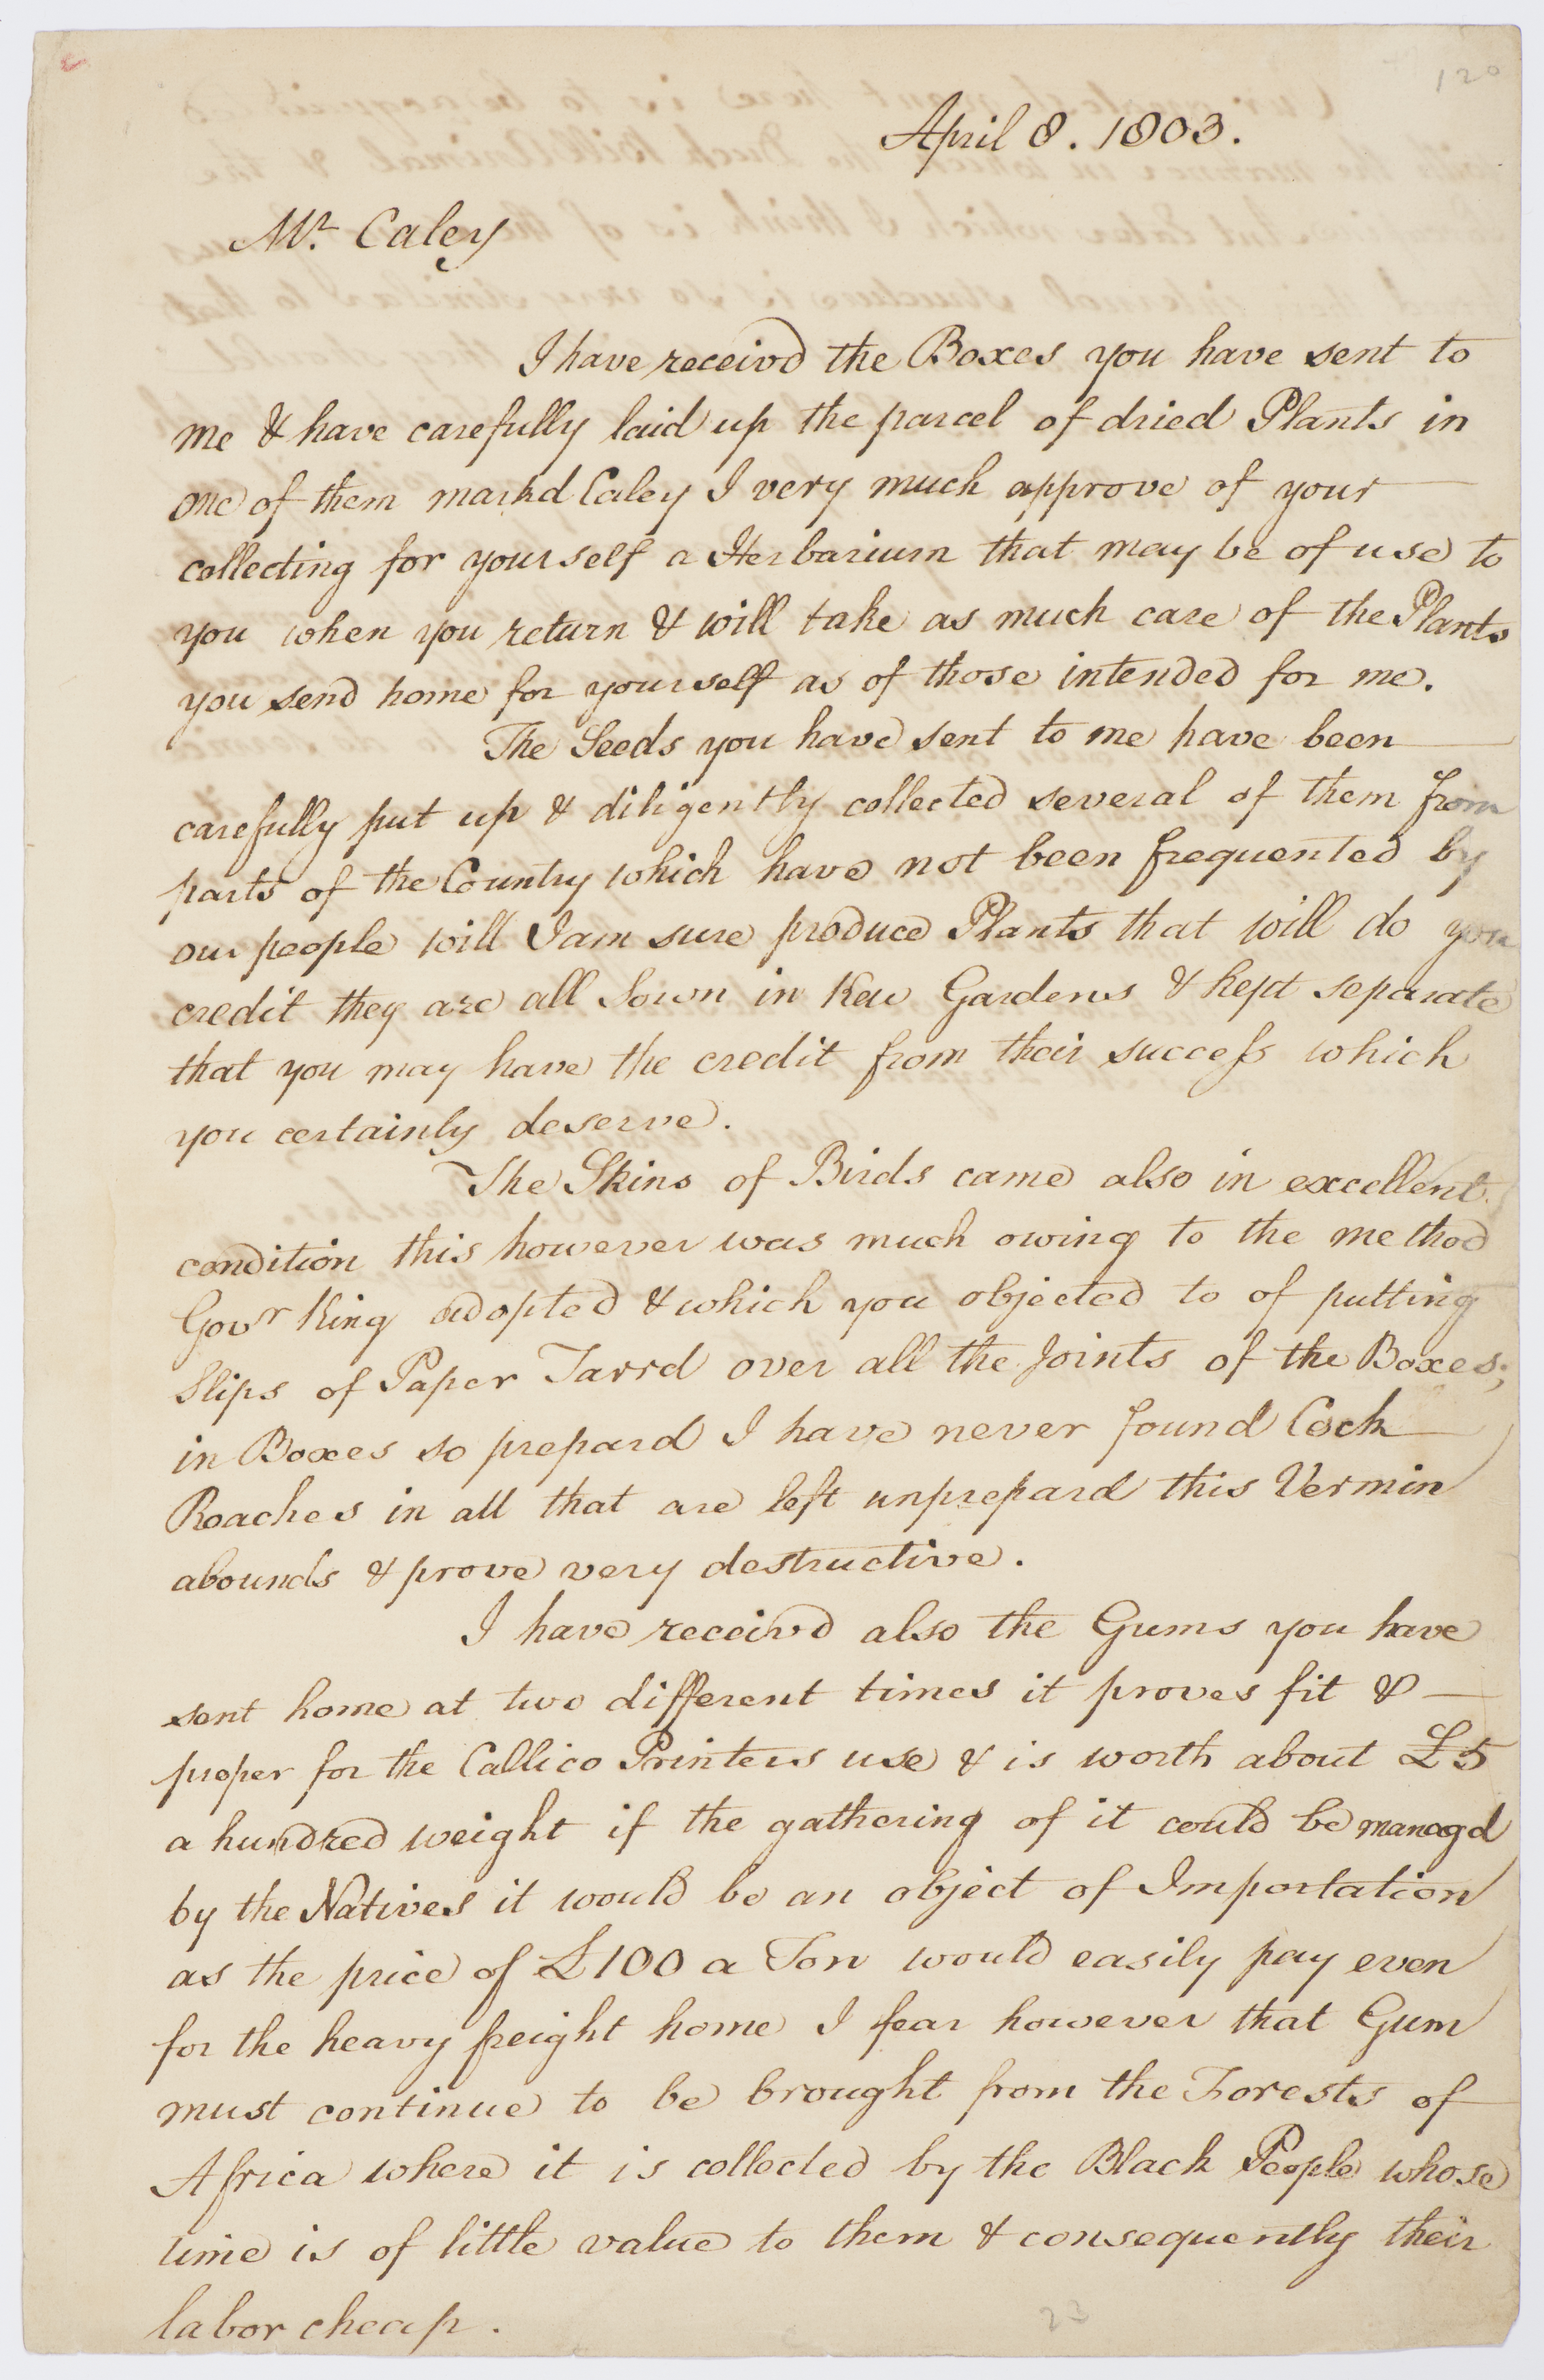 120
April 8. 1803.
Mr. Caley
I have receivd the Boxes you have sent to
me & have carefully laid up the parcel of dried Plants in
one of them markd Caley I very much approve of your
collecting for yourself a Herbarium that may be of use to
you when you return & will take as much care of the Plants
you send home for yourself as of those intended for me.
The Seeds you have sent to me have been
carefully put up & diligently collected several of them from
parts of the Country which have not been frequented by
our people will I am sure produce Plants that will do you
credit they are all Sown in Kew Gardens & kept separate
that you may have the credit from their success which
you certainly deserve.
The Skins of Birds came also in excellent
condition this however was much owing to the method
Govr King adopted & which you objected to of putting
Slips of Paper Tarrd over all the Joints of the Boxes;
in Boxes so prepard I have never found Cock
Roaches in all that are left unprepard this Vermin
abounds & prove very destructive.
I have receivd also the Gums you have
sent home at two different times it proves fit &
proper for the Callico Printers use & is worth about £5
a hundred weight if the gathering of it could be managd
by the Natives it would be an object of Importation
as the price of £100 a Ton would easily pay even
for the heavy freight home I fear however that Gum
must continue to be brought from the Forests of
Africa where it is collected by the Black People whose
time is of little value to them & consequently their
labor cheap.
23